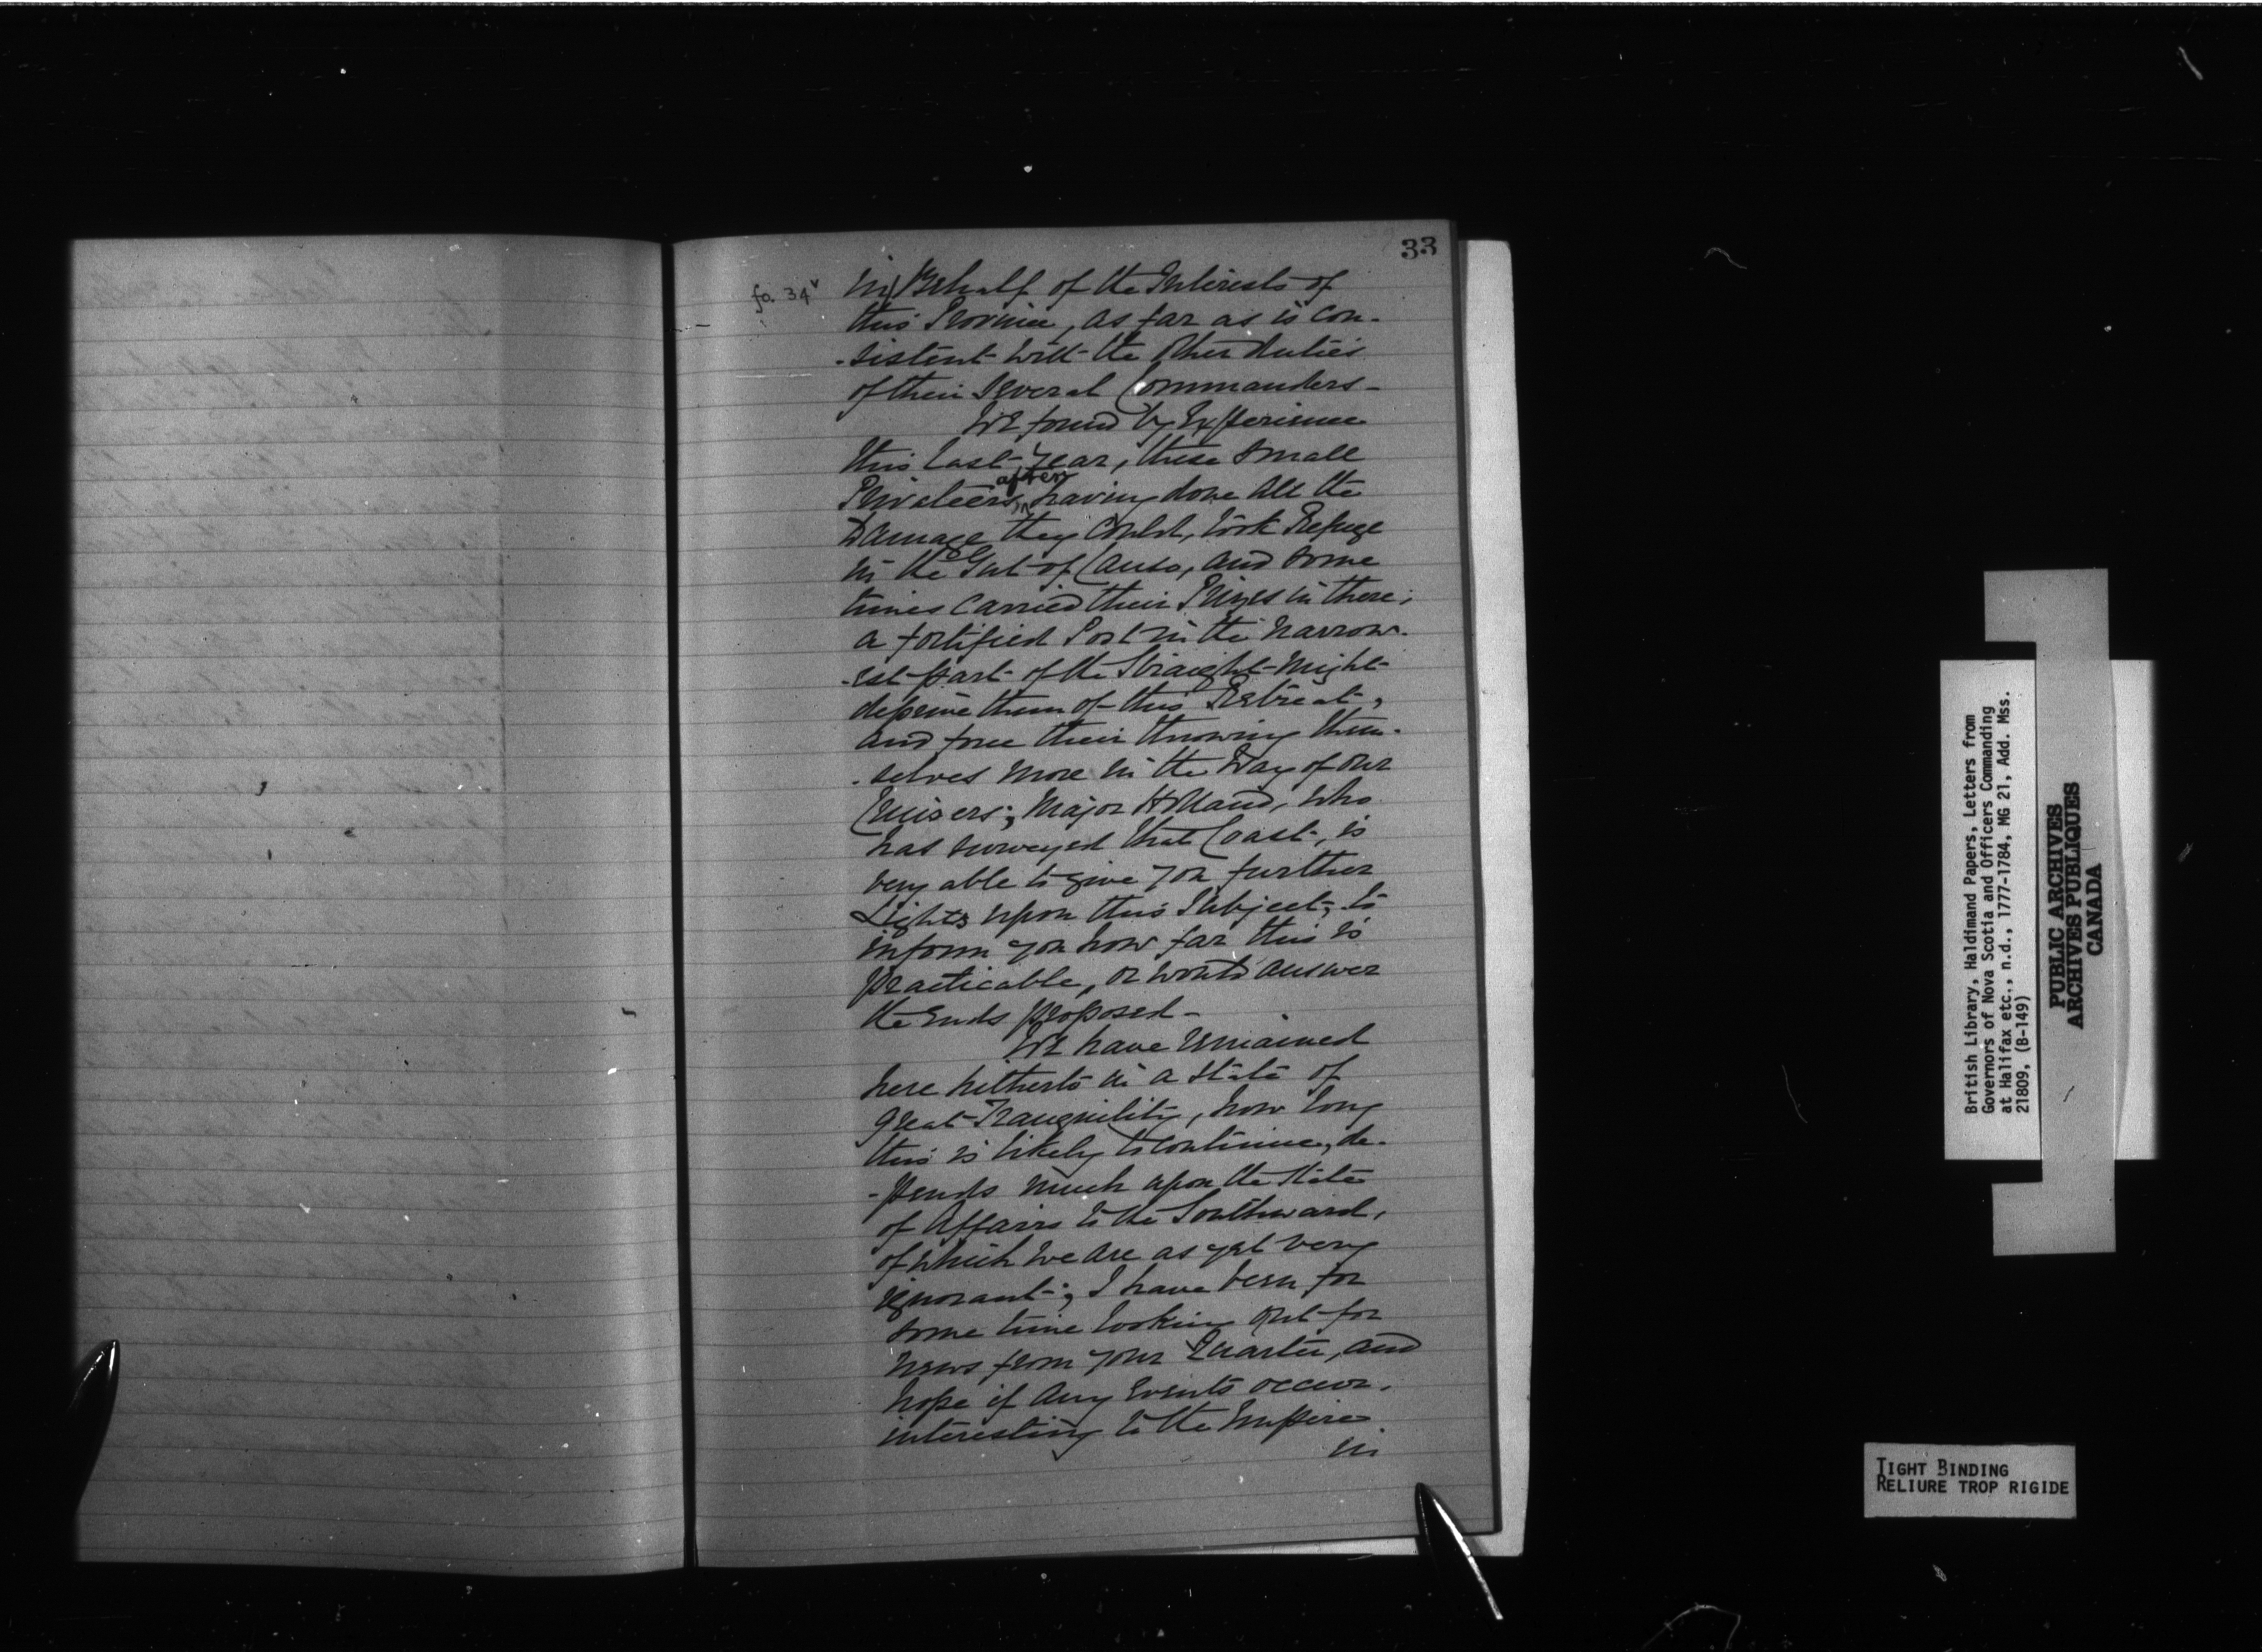 33
fo. 34v
in Behalf of the Interests of
this Province, as far as is con-
-sistent with the other duties
of their several Commanders-
We found by Experience
this last year, these small
Privateers, after having done all the
Damage they could, took Refuge
in the Gut of Canso, and some
times carried their Prizes in there;
a fortified Post in the narrow-
-est part of the Straight might
deprive them of this Retreat,
and force their throwing them-
-selves more in the Way of our
Cruisers; Major Holland, who
has surveyed that Coast, is
very able to give you further
Lights upon this Subject, to
inform you how far this is
practicable, or would answer
the Ends proposed-
We have remained
here hitherto in a State of
great Tranquility, how long
this is likely to continue, de-
-pends much upon the State
of Affairs to the Southward,
of which we are as yet very
ignorant; I have been for
some time looking out for
news from your Quarter, and
hope if any Events occur,
interesting to the Empire
in
British Library, Haldimand Papers, Letters from
Governors of Nova Scotia and Officers Commanding
at Halifax etc., n.d., 1777-1784, MG 21, Add. Mss.
21809, (B-149)
PUBLIC ARCHIVES
ARCHIVES PUBLIQUES
CANADA
TIGHT BINDING
RELIURE TROP RIGIDE